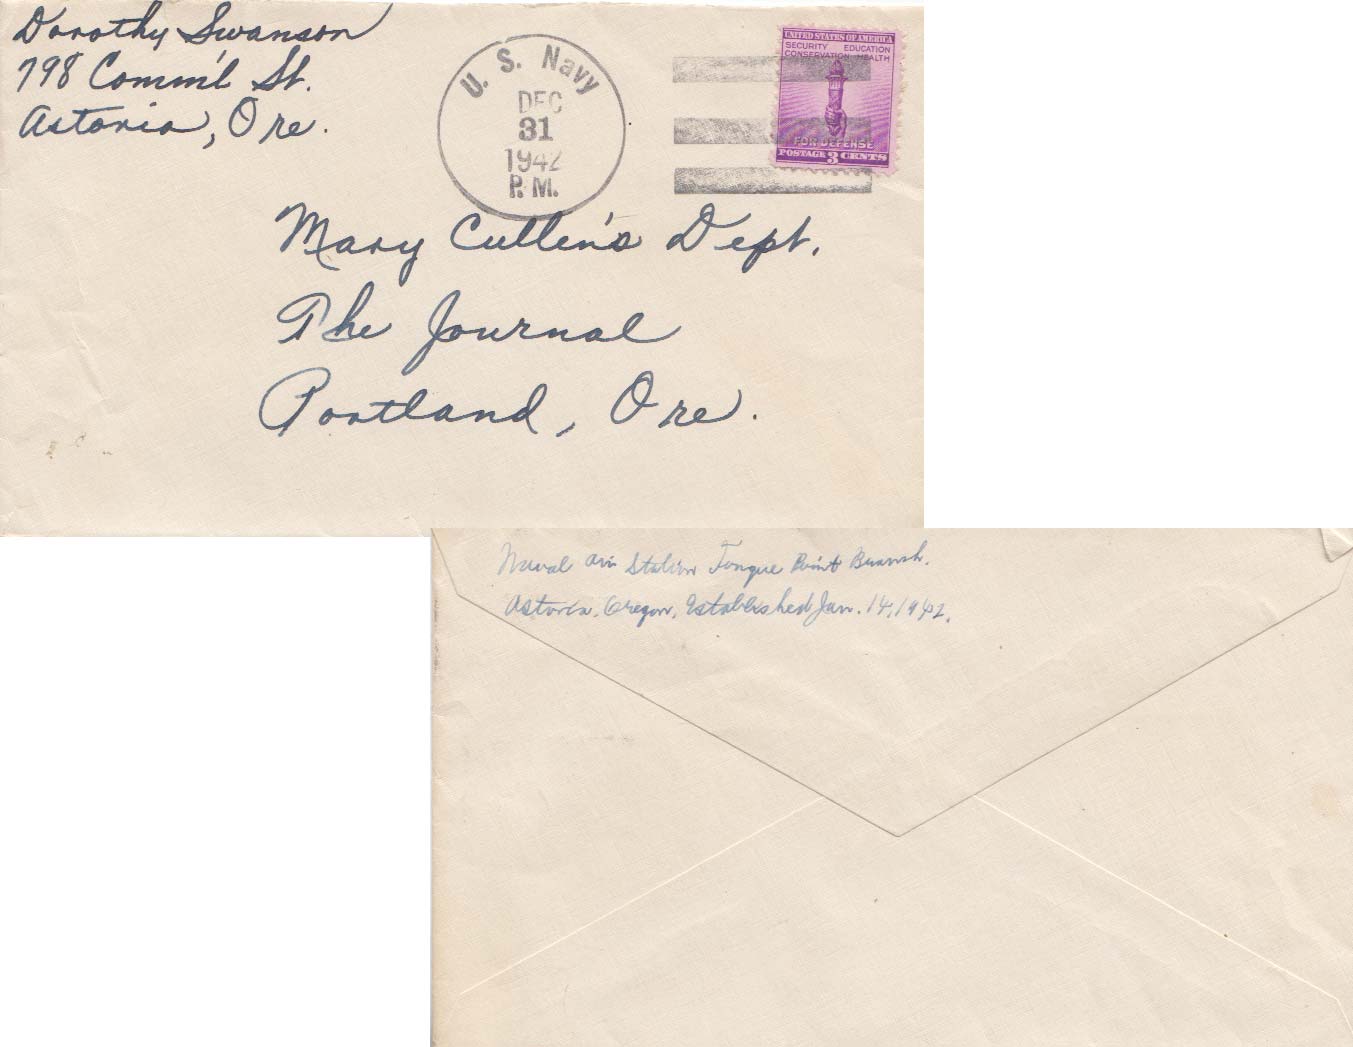 Dorothy Swanson
798 Comm'l St.
Astoria, Ore.
U. S. Navy
DEC
31
1942
P.M.
UNITED STATES OF AMERICA
SECURITY EDUCATION
CONSERVATION HEALTH
FOR DEFENSE
POSTAGE 3 CENTS
Mary Cullen's Dept.
The Journal
Portland, Ore.
Naval Air Station Tongue Point Branch.
Astoria, Oregon, Established Jan. 14, 1942.